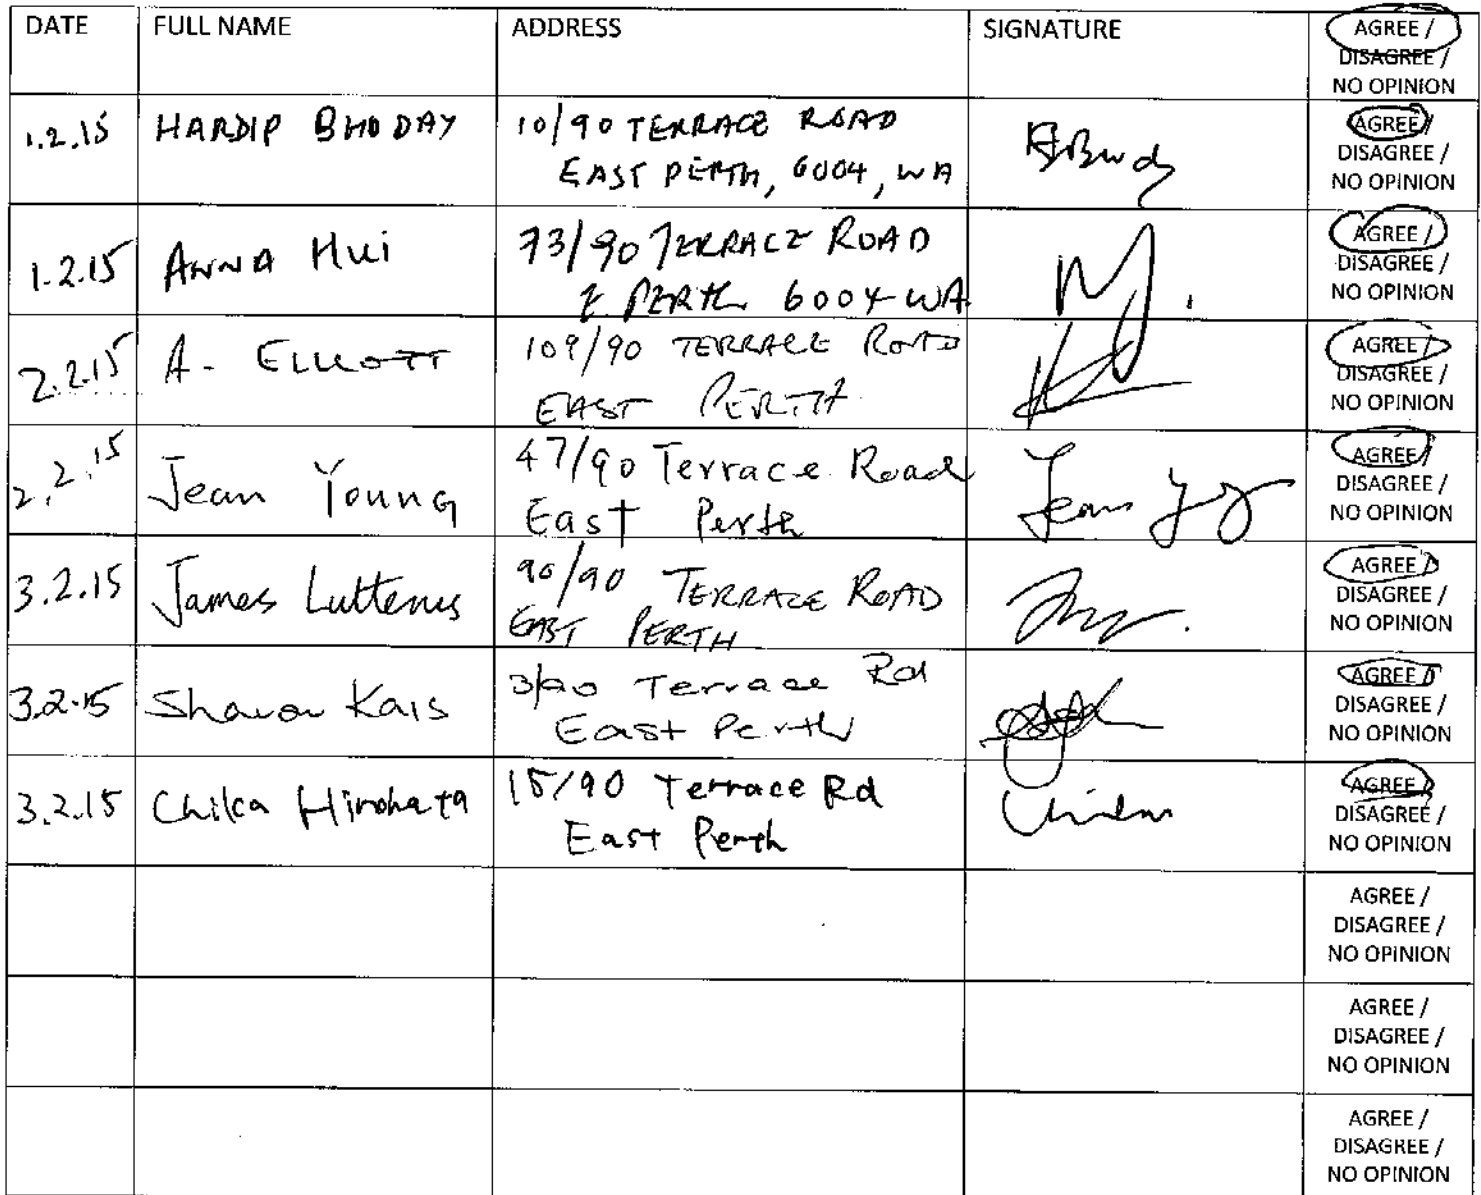 DATE FULL NAME ADDRESS SIGNATURE AGREE /
DISAGREE /
NO OPINION
1.2.15 HARDIP BHODAY 10/90 TERRACE ROAD AGREE /
EAST PERTH, 6004, WA DISAGREE /
NO OPINION
1.2.15 ANNA HUI 73/90 TERRACE ROAD AGREE /
E PERTH 6004 WA DISAGREE /
NO OPINION
2.2.15 A. ELLIOTT 109/90 TERRACE ROAD AGREE /
EAST PERTH DISAGREE /
NO OPINION
2.2.15 Jean Young 47/90 Terrace Road Jean AGREE /
East Perth DISAGREE /
NO OPINION
3.2.15 James Luttenus 90/90 TERRACE ROAD AGREE /
EAST PERTH DISAGREE /
NO OPINION
3.2.15 Sharon Kais 3/90 Terrace Rd AGREE /
East Perth DISAGREE /
NO OPINION
3.2.15 Chika Hirohata 15/90 Terrace Rd AGREE /
East Perth DISAGREE /
NO OPINION
AGREE /
DISAGREE /
NO OPINION
AGREE /
DISAGREE /
NO OPINION
AGREE /
DISAGREE /
NO OPINION